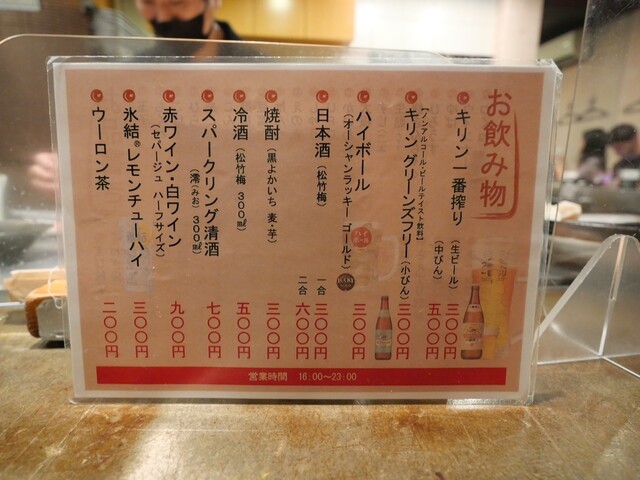 お飲み物
キリン一番搾り (生ビール) 三〇〇円
(中びん) 五〇〇円
【ノンアルコール・ビールテイスト飲料】
キリン グリーンズフリー (小びん) 三〇〇円
ハイボール 三〇〇円
(オーシャンラッキー ゴールド)
日本酒 (松竹梅) 一合 三〇〇円
二合 六〇〇円
焼酎 (黒よかいち 麦・芋) 三〇〇円
冷酒 (松竹梅 300㎖) 五〇〇円
スパークリング清酒 七〇〇円
(澪(みお) 300㎖)
赤ワイン・白ワイン 九〇〇円
(セパージュ ハーフサイズ)
氷結®レモンチューハイ 三〇〇円
ウーロン茶 二〇〇円
営業時間 16:00～23:00